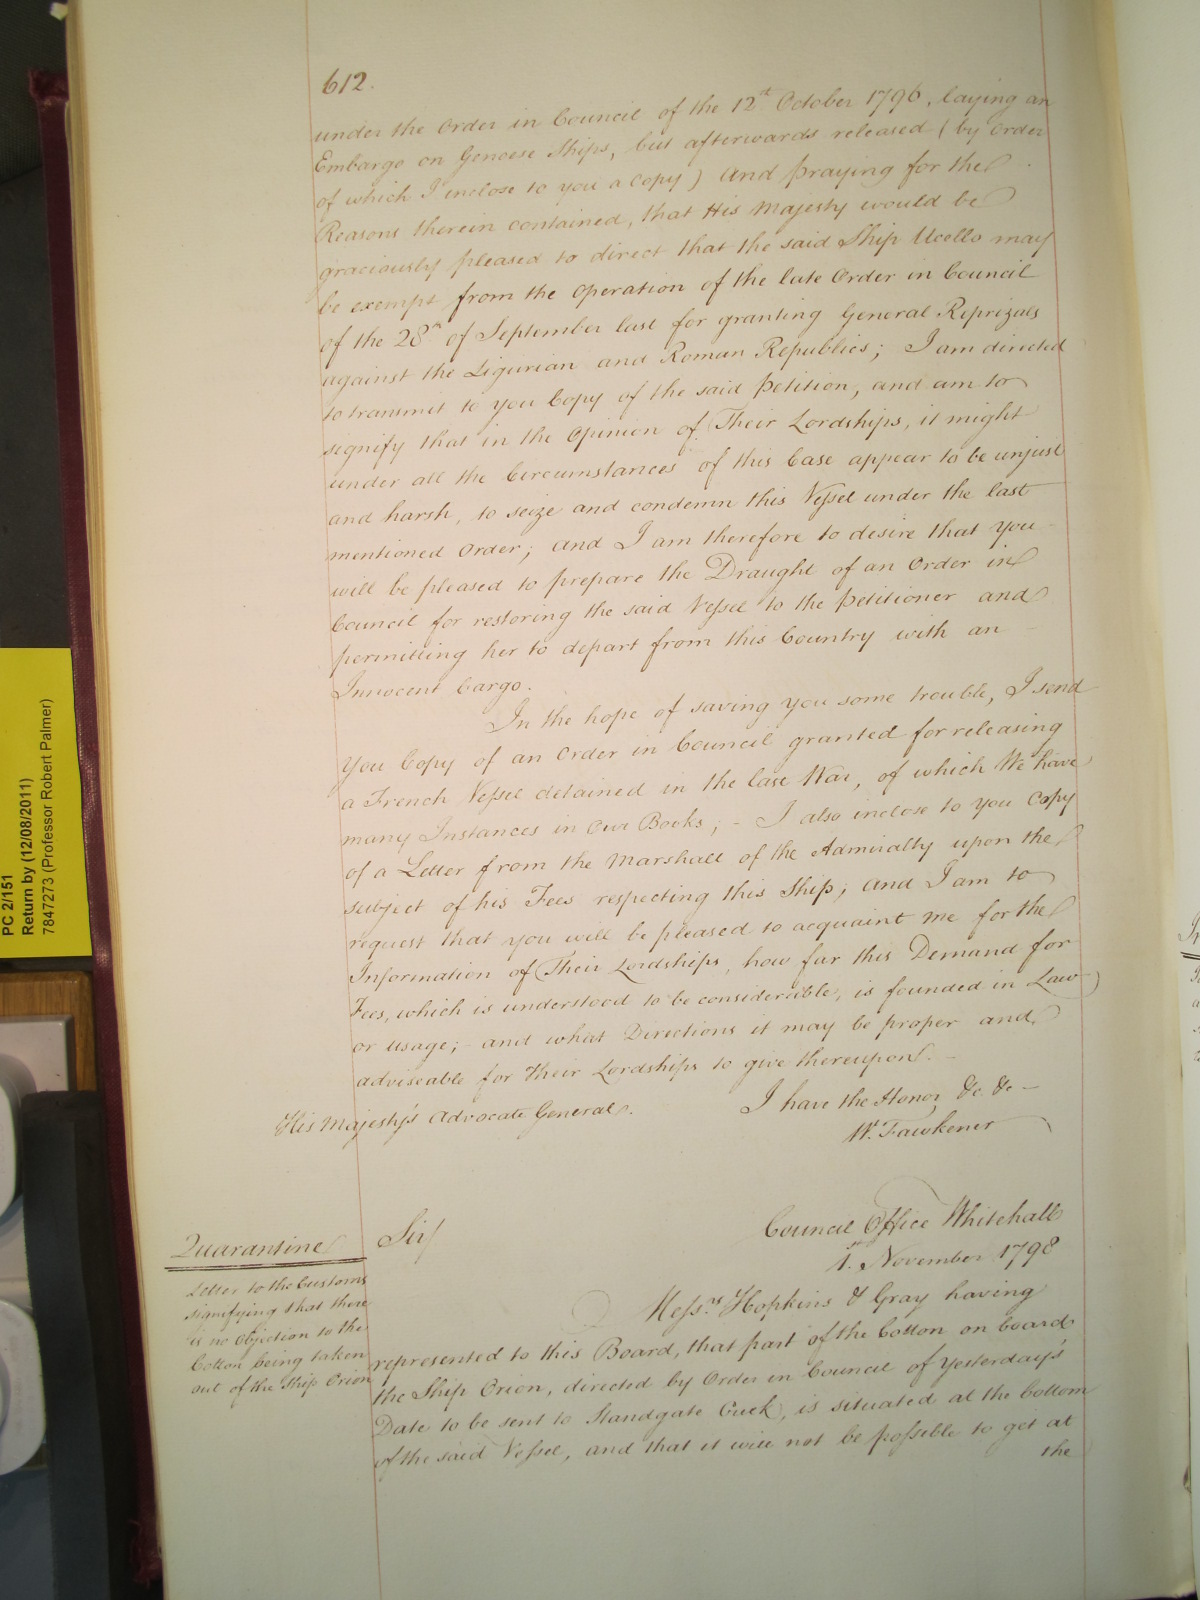 612.
under the Order in Council of the 12th October 1796, laying an
Embargo on Genoese Ships, but afterwards released (by Order
of which I inclose to you a Copy) and praying for the
Reasons therein contained, that His Majesty would be
graciously pleased to direct that the said Ship Ucello may
be exempt from the operation of the late Order in Council
of the 28th of September last for granting General Reprizals
against the Ligurian and Roman Republics; I am directed
to transmit to you Copy of the said Petition, and am to
signify that in the Opinion of Their Lordships, it might
under all the Circumstances of this Case appear to be unjust
and harsh, to seize and condemn this Vessel under the last
mentioned Order; and I am therefore to desire that you
will be pleased to prepare the Draught of an Order in
Council for restoring the said Vessel to the Petitioner and
permitting her to depart from this Country with an
Innocent Cargo.
In the hope of saving you some trouble, I send
you Copy of an Order in Council granted for releasing
a French Vessel detained in the last War, of which We have
many Instances in Our Books; - I also inclose to you Copy
of a Letter from the Marshall of the Admiralty upon the
subject of his Fees respecting this Ship; and I am to
request that you will be pleased to acquaint me for the
Information of Their Lordships, how far this Demand for
Fees, which is understood to be considerable, is founded in Law
or usage; and what Directions it may be proper and
adviseable for Their Lordships to give thereupon. -
I have the Honor &c. &c. -
His Majesty's Advocate General.
W. Fawkener
Council Office Whitehall
1st November 1798
Quarantine
Letter to the Customs
signifying that there
is no Objection to the
Cotton being taken
out of the Ship Orion
Sir/
Messrs Hopkins & Gray having
represented to this Board, that part of the Cotton on board
the Ship Orion, directed by Order in Council of Yesterday's
Date to be sent to Standgate Creek, is situated at the bottom
of the said Vessel, and that it will not be possible to get at
the
PC 2/151
Return by (12/08/2011)
7847273 (Professor Robert Palmer)